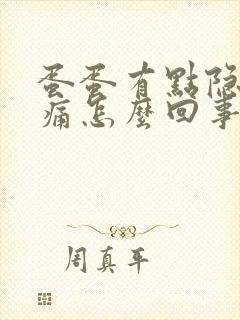 蛋蛋有點隐
痛怎麼回事
周真平